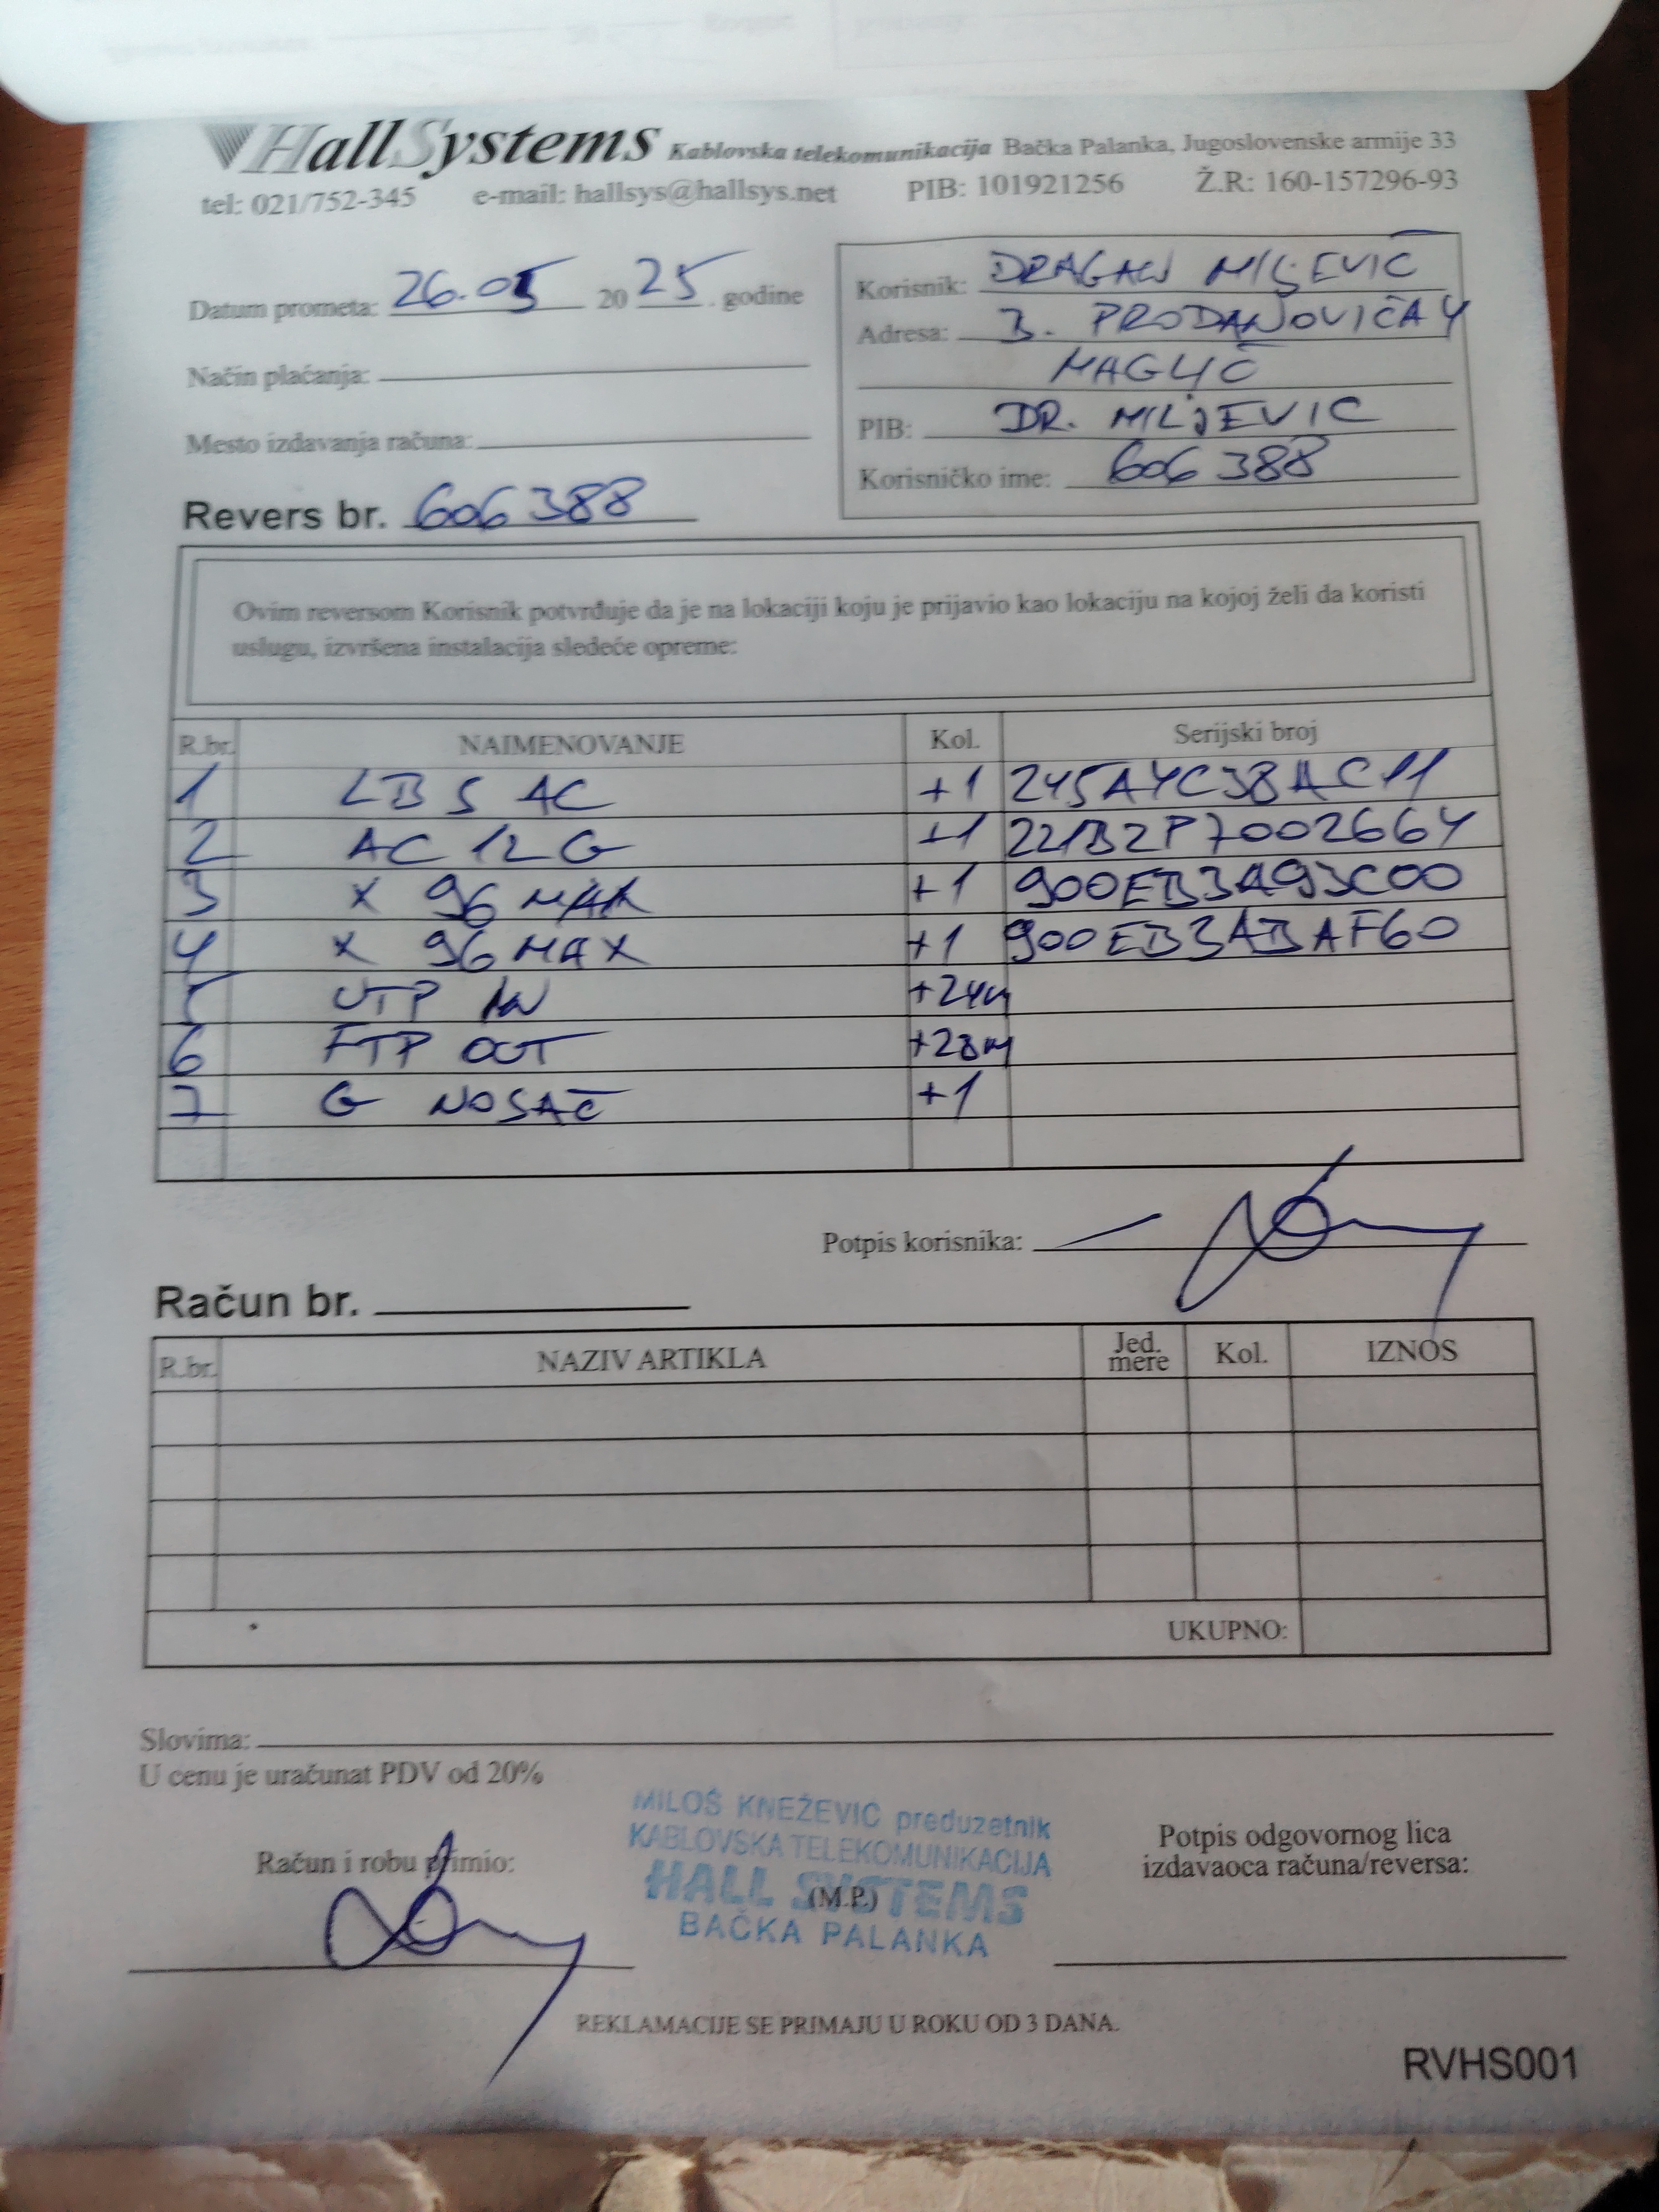 HallSystems Kablovska telekomunikacija Bačka Palanka, Jugoslovenske armije 33
tel: 021/752-345 e-mail: hallsys@hallsys.net PIB: 101921256 Ž.R: 160-157296-93
Datum prometa: 26.05 2025. godine
Način plaćanja:
Mesto izdavanja računa:
Revers br. 606388
Korisnik: DRAGAN MILJEVIĆ
Adresa: B. PRODANOVIĆA 4
MAGLIĆ
PIB: DR. MILJEVIC
Korisničko ime: 606388
Ovim reversom Korisnik potvrđuje da je na lokaciji koju je prijavio kao lokaciju na kojoj želi da koristi
uslugu, izvršena instalacija sledeće opreme:
R.br. NAIMENOVANJE Kol. Serijski broj
1 LB 5 AC +1 245A4C38AC11
2 AC 12 G +1 221B2P7002664
3 X 96 MAX +1 900EB3A93C00
4 X 96 MAX +1 900EB3ABAF60
5 UTP IN +24m
6 FTP OUT +28m
7 G NOSAČ +1
Potpis korisnika:
Račun br.
R.br. NAZIV ARTIKLA Jed. mere Kol. IZNOS
UKUPNO:
Slovima:
U cenu je uračunat PDV od 20%
Račun i robu primio:
MILOŠ KNEŽEVIĆ preduzetnik
KABLOVSKA TELEKOMUNIKACIJA
HALL SYSTEMS
(M.P.)
BAČKA PALANKA
Potpis odgovornog lica
izdavaoca računa/reversa:
REKLAMACIJE SE PRIMAJU U ROKU OD 3 DANA.
RVHS001